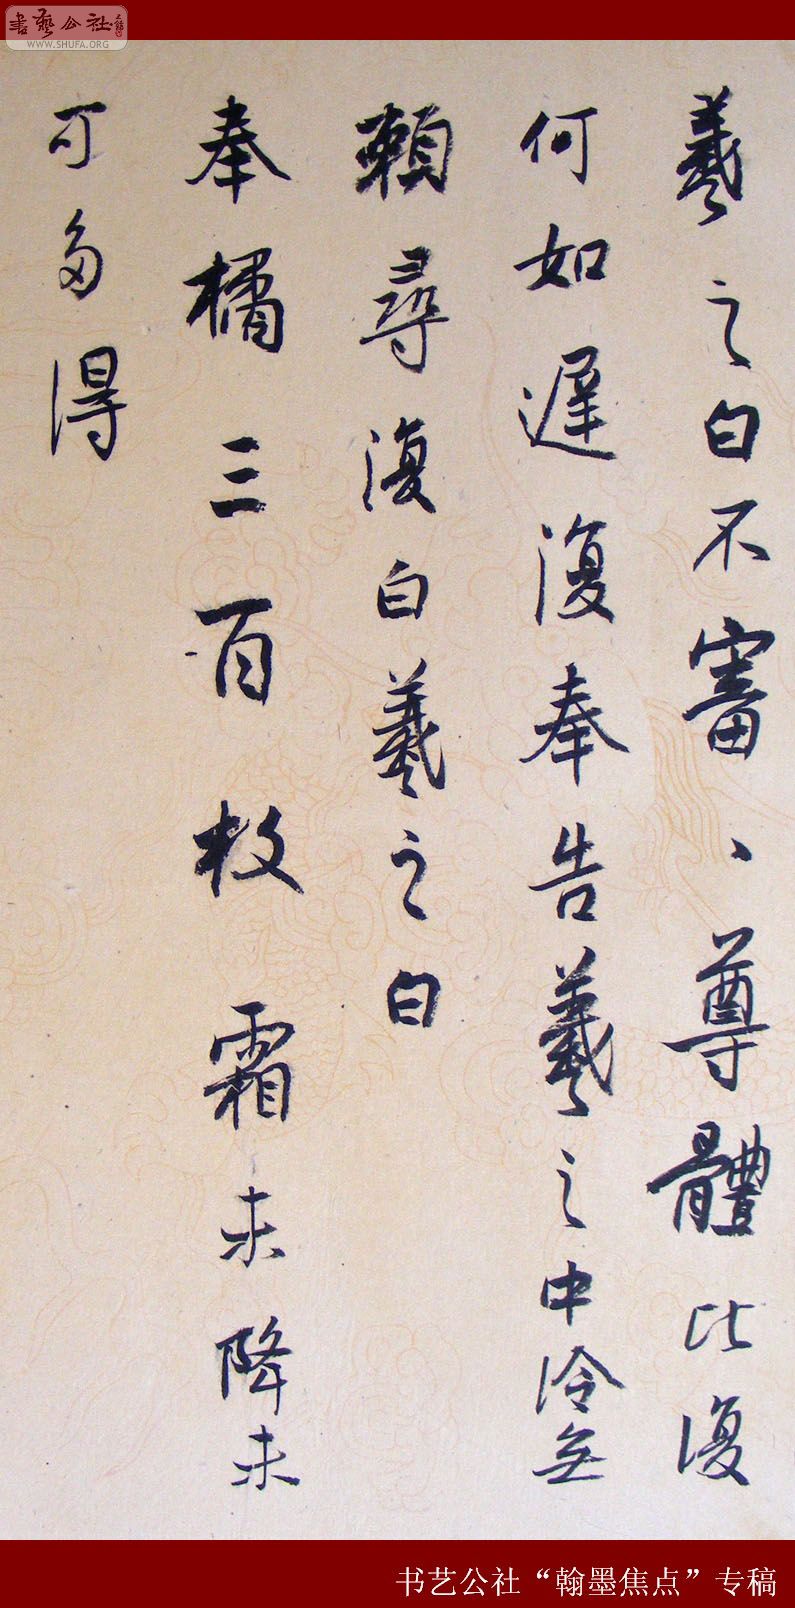 書藝公社
WWW.SHUFA.ORG
羲之白不審、尊體比復
何如遲復奉告羲之中冷無
賴尋復白羲之白
奉橘三百枚霜未降未
可多得
书艺公社“翰墨焦点”专稿